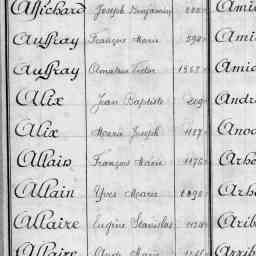 Affichard Joseph Benjamin Ami
Auffray François Marie 594 Ami
Auffray Amateur Victor 1363 Amia
Alix Jean Baptiste 209 André
Alix Marie Joseph 1157 Anoq
Allain François Marie 1176 Arho
Allain Yves Marie Arho
Allaire Eugène Stanislas Arib
Allaire Marie Arrib